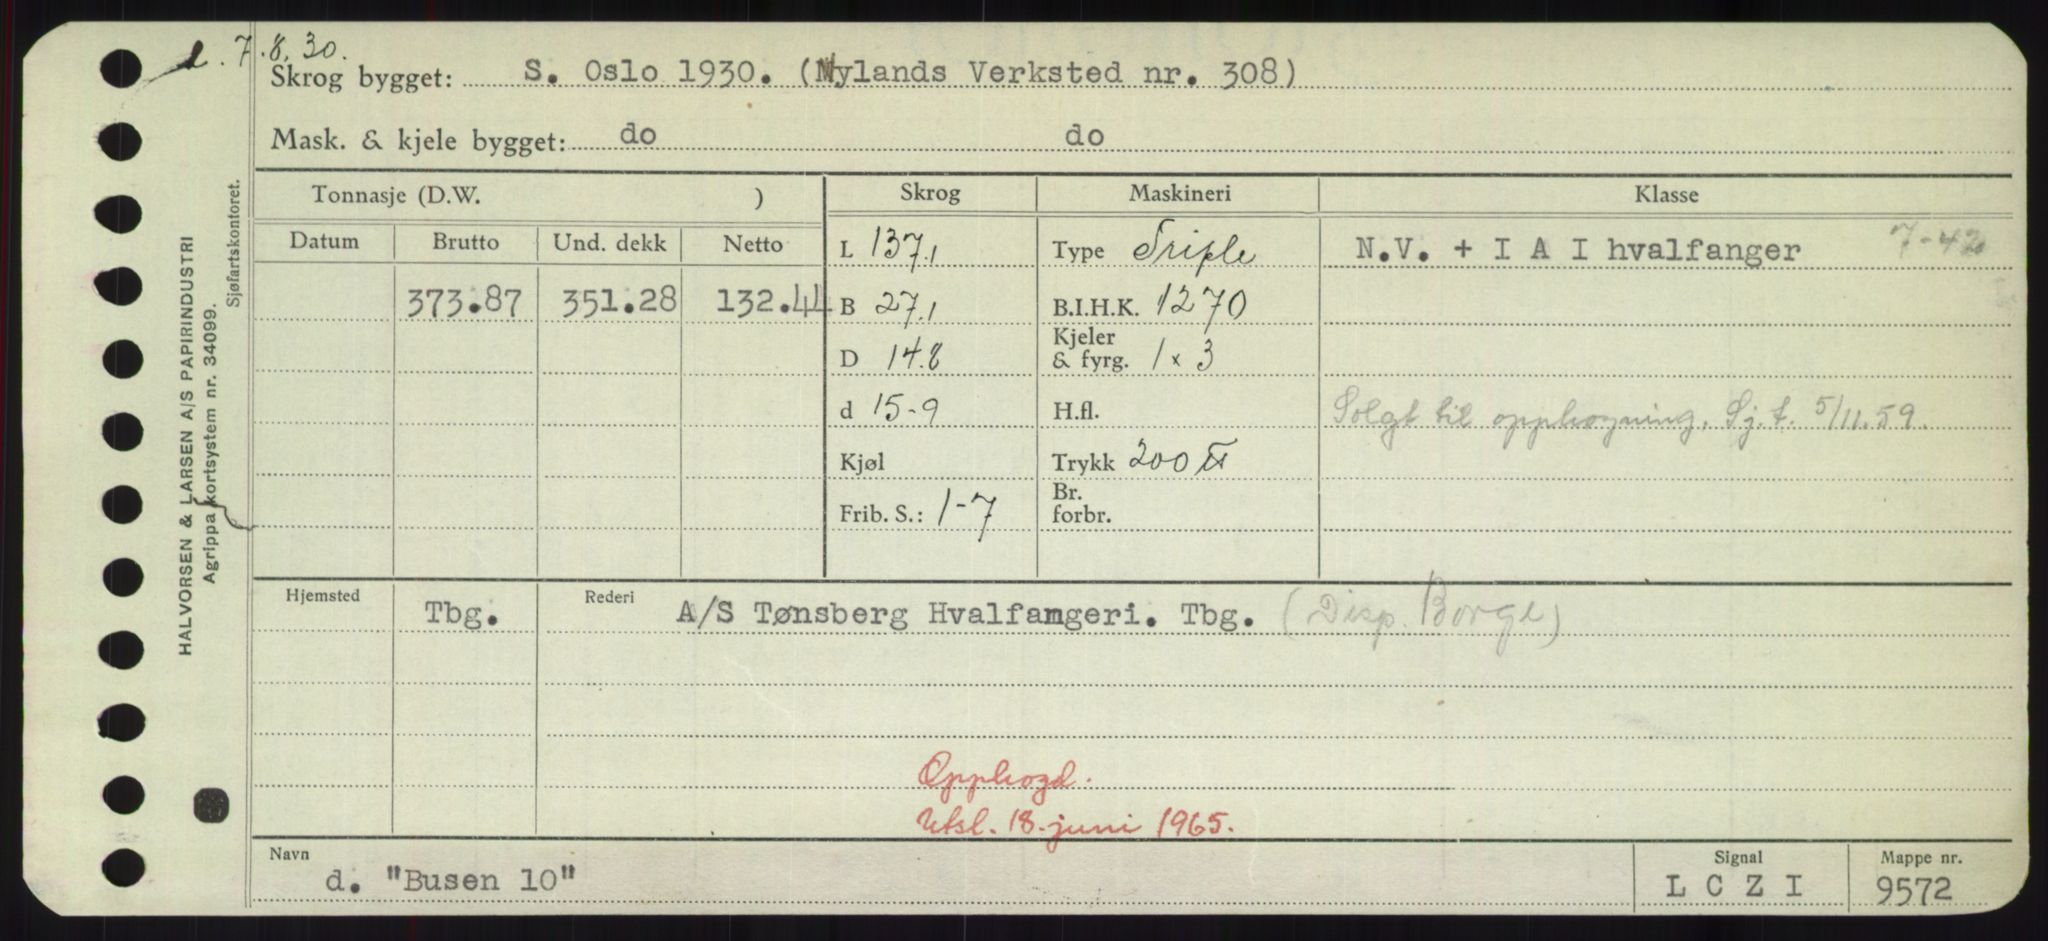 l. 7.8.30.
Skrog bygget: S. Oslo 1930. (Nylands Verksted nr. 308)
Mask. & kjele bygget: do do
Tonnasje (D.W. ) Skrog Maskineri Klasse
Datum Brutto Und. dekk Netto
L 137,1 Type Triple N.V. + I A I hvalfanger 7-42
373.87 351.28 132.44 B 27,1 B.I.H.K. 1270
D 14.8 Kjeler & fyrg. 1 x 3
d 15-9 H.fl. Solgt til opphogning, Sj.t. 5/11.59.
Kjøl Trykk 200 lb
Frib. S.: 1-7 Br. forbr.
Hjemsted Tbg. Rederi A/S Tønsberg Hvalfamgeri. Tbg. (Disp. Borge)
Opphogd.
Utsl. 18. juni 1965.
Navn Signal Mappe nr.
d. "Busen 10" L C Z I 9572
HALVORSEN & LARSEN A/S PAPIRINDUSTRI
Agrippa kortsystem nr. 34099.
Sjøfartskontoret.